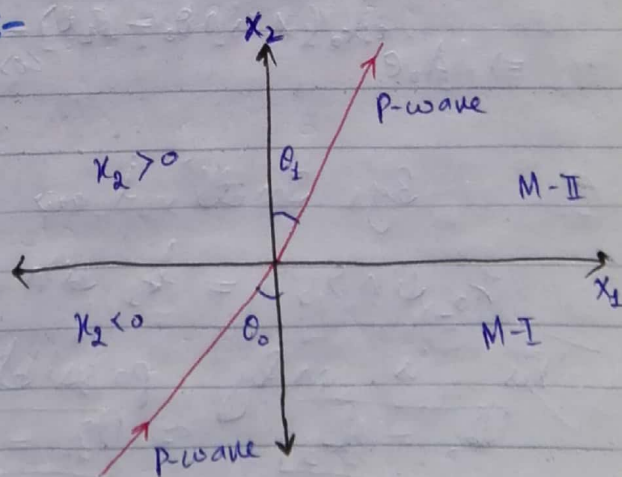 x₂
P-wave
x₂ > 0
θ₁
M-II
x₁
x₂ < 0
θ₀
M-I
P-wave